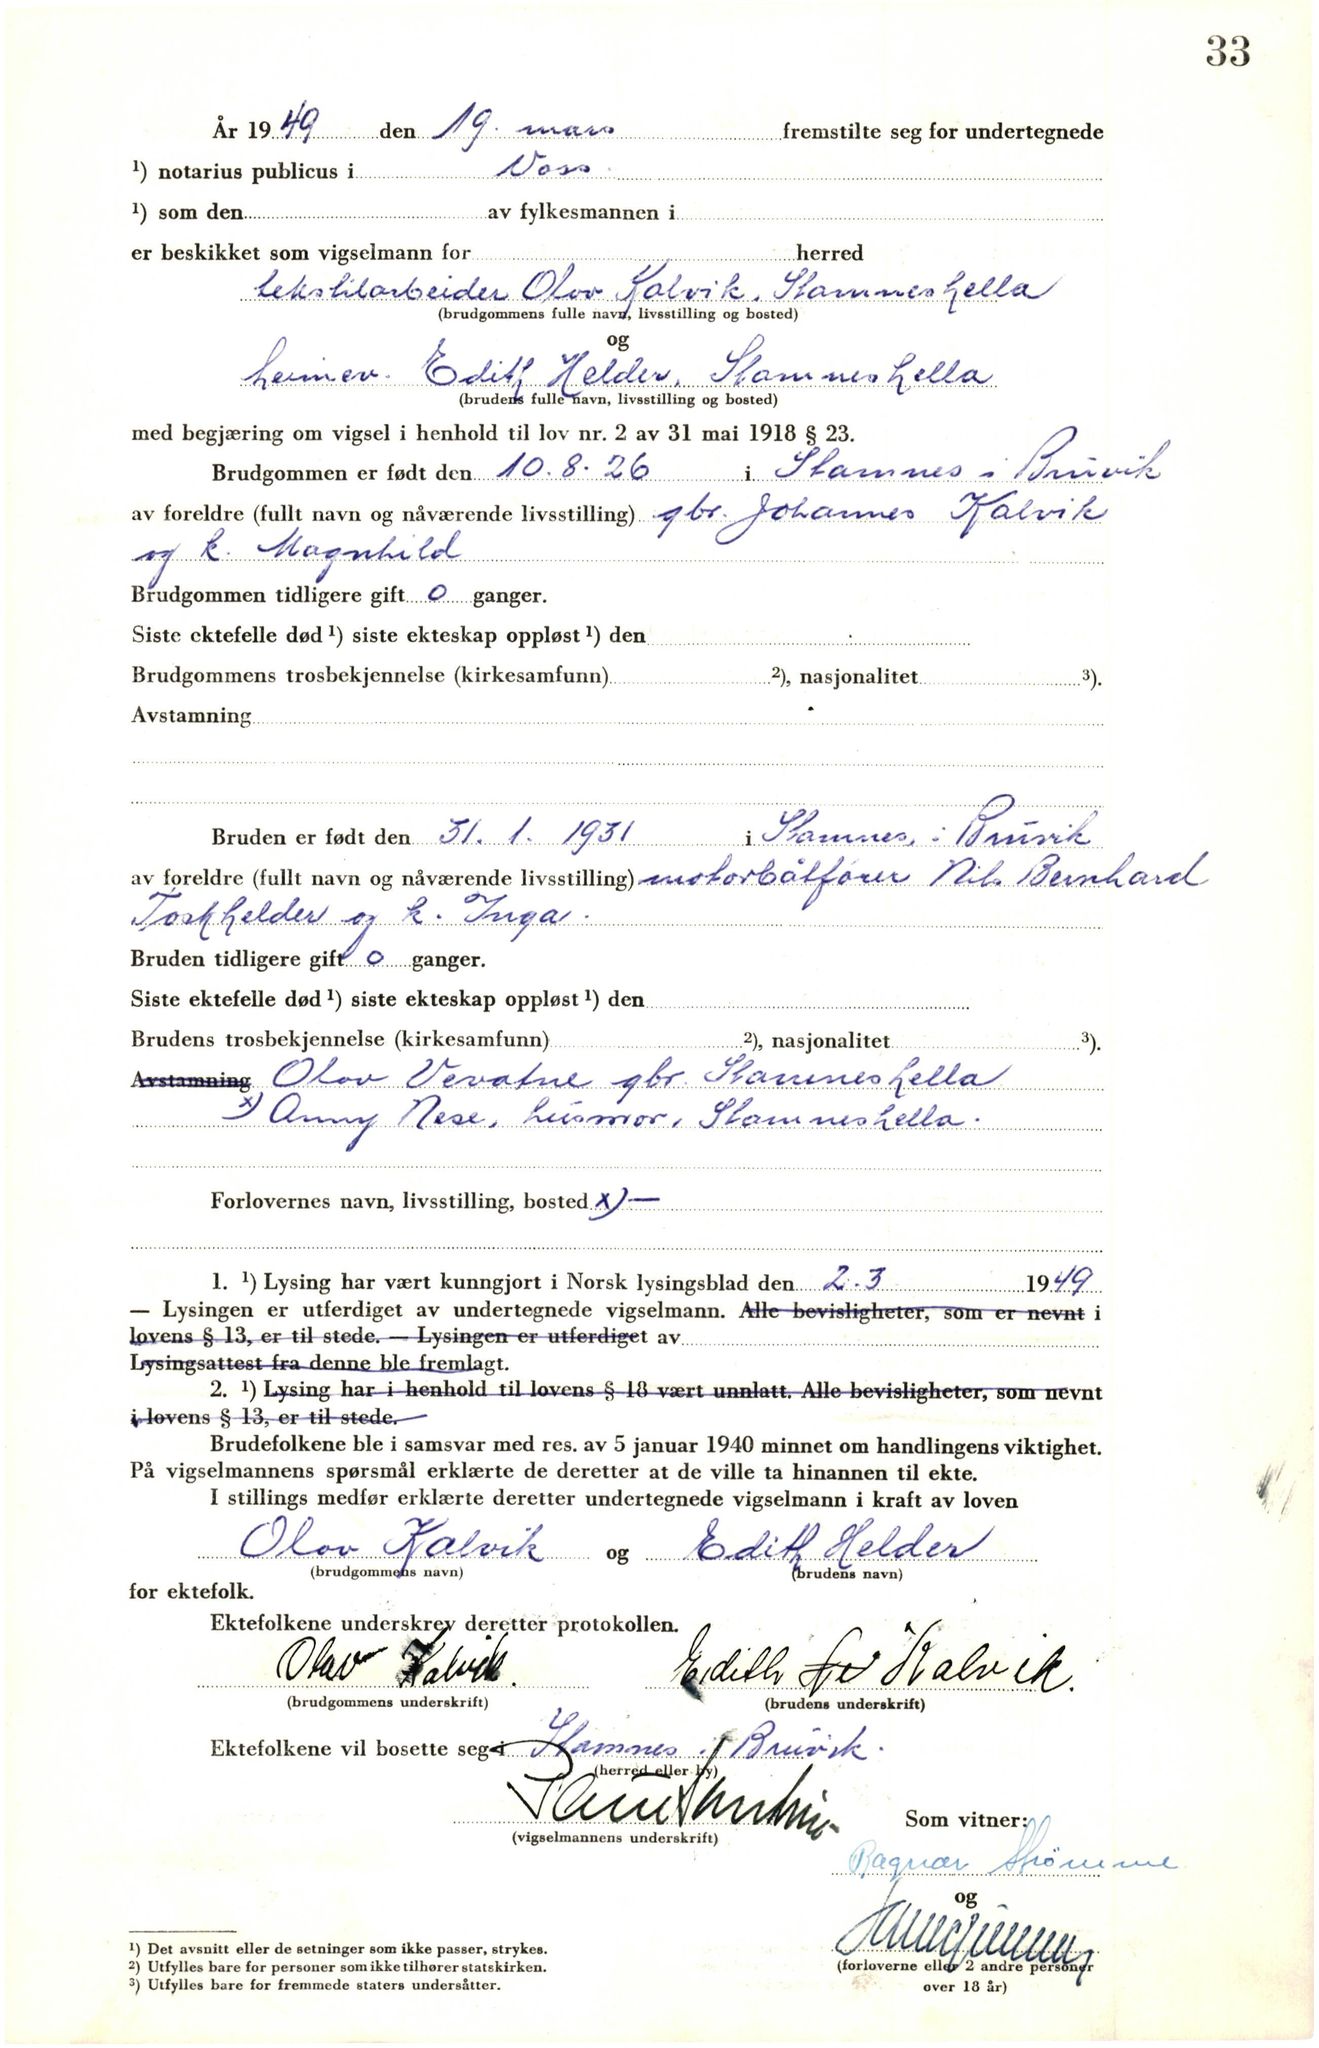 33
År 1949 den 19. mars fremstilte seg for undertegnede
¹) notarius publicus i Voss.
¹) som den av fylkesmannen i
er beskikket som vigselmann for herred
tekstilarbeider Olav Kalvik, Stamneshella
(brudgommens fulle navn, livsstilling og bosted)
og
heimev. Edith Helder, Stamneshella
(brudens fulle navn, livsstilling og bosted)
med begjæring om vigsel i henhold til lov nr. 2 av 31 mai 1918 § 23.
Brudgommen er født den 10.8.26 i Stamnes i Bruvik
av foreldre (fullt navn og nåværende livsstilling) gbr. Johannes Kalvik
og k. Magnhild
Brudgommen tidligere gift 0 ganger.
Siste ektefelle død ¹) siste ekteskap oppløst ¹) den
Brudgommens trosbekjennelse (kirkesamfunn) ²), nasjonalitet ³).
Avstamning
Bruden er født den 31. 1. 1931 i Stamnes, i Bruvik
av foreldre (fullt navn og nåværende livsstilling) motorbåtfører Nils Bernhard
Toskhelder og k. Inga.
Bruden tidligere gift 0 ganger.
Siste ektefelle død ¹) siste ekteskap oppløst ¹) den
Brudens trosbekjennelse (kirkesamfunn) ²), nasjonalitet ³).
Avstamning Olav Vevatne gbr. Stamneshella
x) Anny Nese, husmor, Stamneshella.
Forlovernes navn, livsstilling, bosted x) —
1. ¹) Lysing har vært kunngjort i Norsk lysingsblad den 2.3 1949
— Lysingen er utferdiget av undertegnede vigselmann. Alle bevisligheter, som er nevnt i
lovens § 13, er til stede. — Lysingen er utferdiget av
Lysingsattest fra denne ble fremlagt.
2. ¹) Lysing har i henhold til lovens § 18 vært unnlatt. Alle bevisligheter, som nevnt
i lovens § 13, er til stede.
Brudefolkene ble i samsvar med res. av 5 januar 1940 minnet om handlingens viktighet.
På vigselmannens spørsmål erklærte de deretter at de ville ta hinannen til ekte.
I stillings medfør erklærte deretter undertegnede vigselmann i kraft av loven
Olav Kalvik og Edith Helder
(brudgommens navn) (brudens navn)
for ektefolk.
Ektefolkene underskrev deretter protokollen.
Olav Kalvik. Edith Kalvik.
(brudgommens underskrift) (brudens underskrift)
Ektefolkene vil bosette seg i Stamnes i Bruvik.
(herred eller by)
(vigselmannens underskrift)
Som vitner:
Ragnar Strømme
og
(forloverne eller 2 andre personer
over 18 år)
¹) Det avsnitt eller de setninger som ikke passer, strykes.
²) Utfylles bare for personer som ikke tilhører statskirken.
³) Utfylles bare for fremmede staters undersåtter.